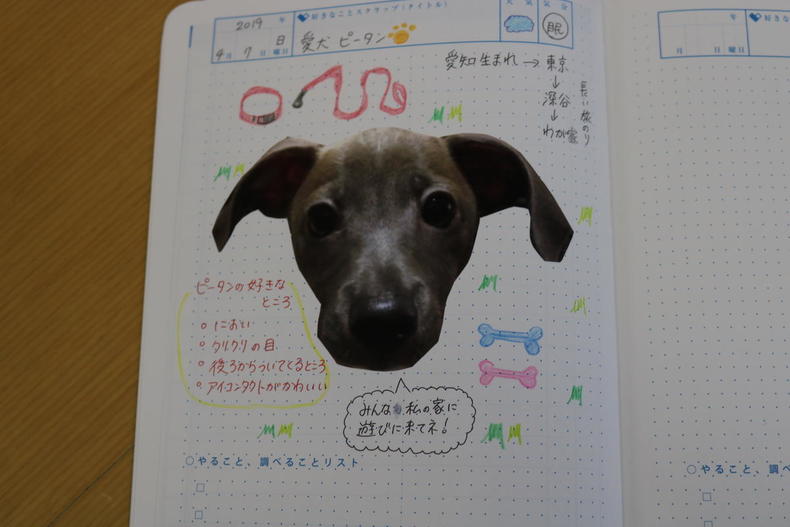 2019 年
4月 7日 日曜日
好きなことスクラップ(タイトル)
愛犬 ピータン
天気
気分
眠
愛知生まれ → 東京
↓
深谷
↓
わが家
長い旅のり
ピータンの好きな
ところ
○ におい
○ クリクリの目
○ 後ろからついてくるところ
○ アイコンタクトがかわいい
みんな 私の家に
遊びに来てネ!
○やること、調べることリスト
年
月 日 曜日
好きな
○やること、調べ